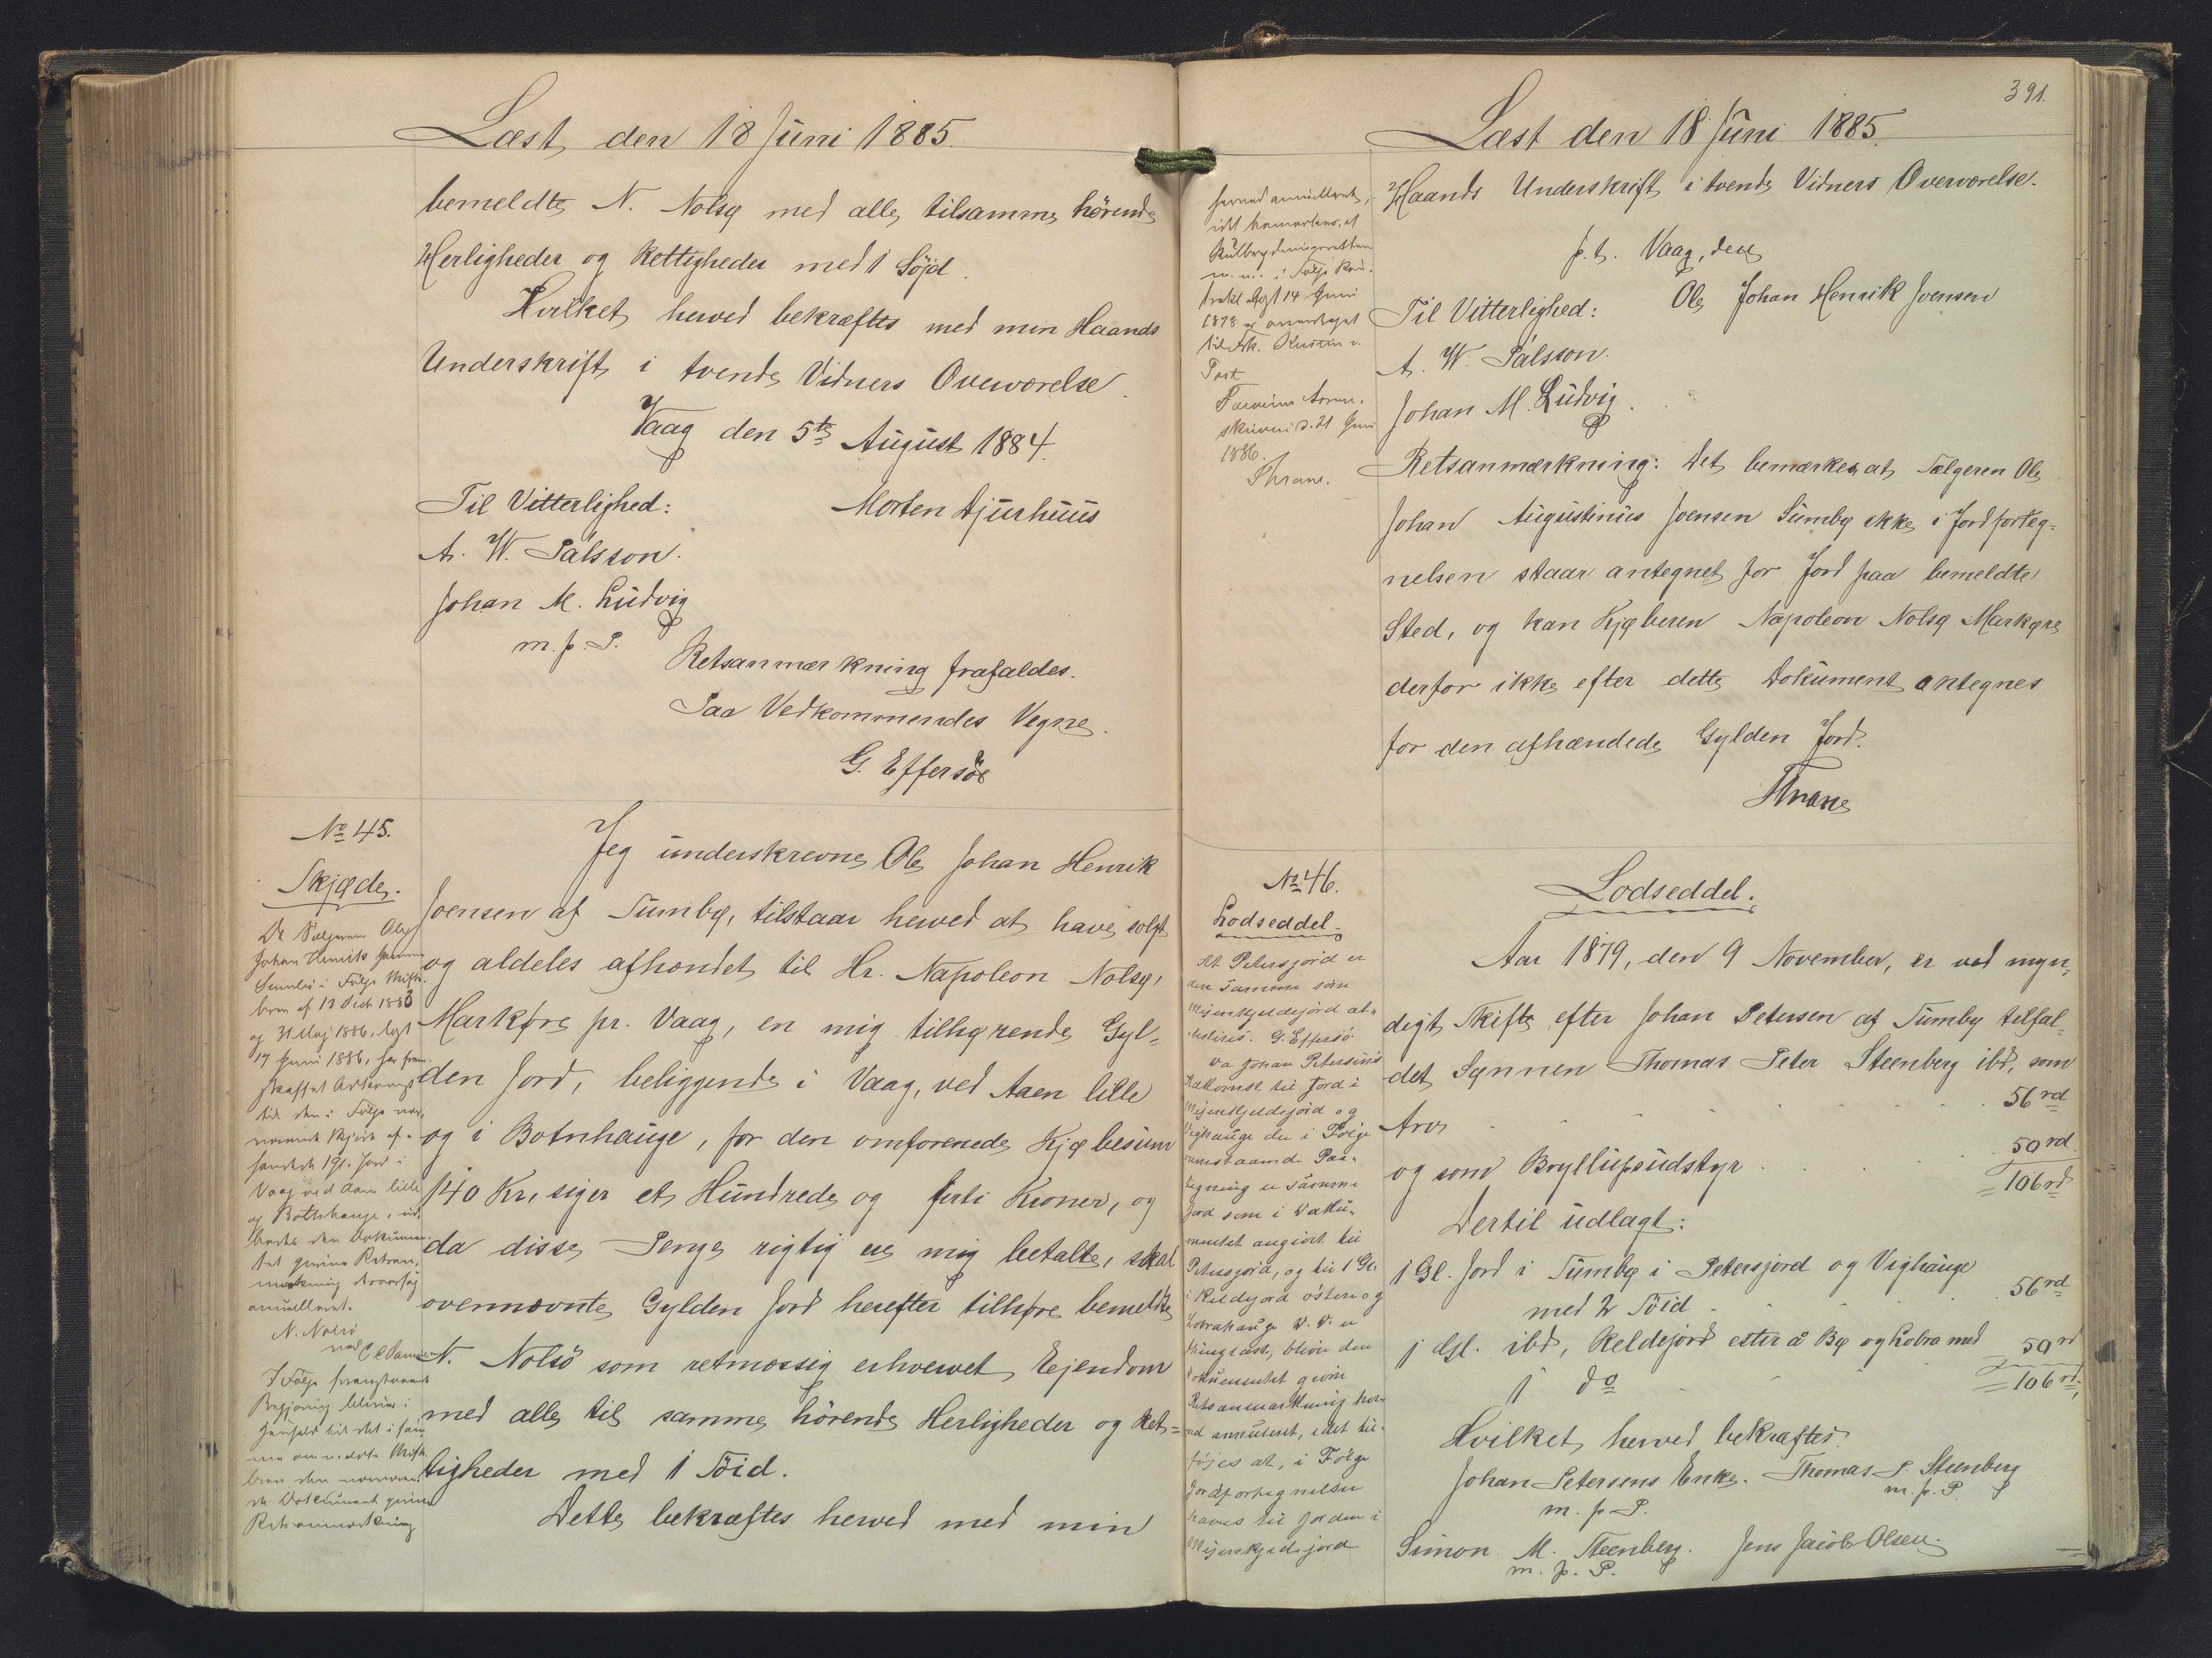 Læst den 18 Juni 1885.
bemeldte N. Nolsø med alle tilsamme hörende
Herligheder og Rettigheder med 1 Söjd.
Hvilket herved bekræftes med min Haands
Underskrift i tvende Vidners Overværelse.
Vaag den 5te August 1884.
Til Vitterlighed: Morten Djurhuus
A. W. Palsson.
Johan M. Ludvig
m. p. P.
Retsanmærkning frafaldes.
Paa Vedkommendes Vegne.
G. Effersöe
No 45.
Skjøde.
Da Sælgeren Ole
Johan Henrik Joensen
Sumbø i Følge Skifte-
brev af 13 Decb 1883
og 31 Maj 1886, læst
17 Juni 1886, har frem-
skaffet Adkomst
til den i Følge
Skjøde af-
hændede 1 Gl. Jord i
Vaag ved Aaen lille
og Bottshauge,
den Dokumen-
tet givne Retsan-
mærkning
annulleret.
N. Nolsö
ved
I Følge foranstaaende
Begjæring bliver i
Henhold til det i sam-
me ommeldte Skifte-
brev den
Dokument givne
Retsanmærkning
Jeg underskrevne Ole Johan Henrik
Joensen af Sumbø, tilstaar herved at have solgt
og aldeles afhændet til Hr. Napoleon Nolsø,
Markøre pr. Vaag, en mig tilhørende Gyl-
den Jord, beliggende i Vaag, ved Aaen lille
og i Botnhauge, for den omforenede Kjøbesum
140 Kr., siger et Hundrede og firti Kroner, og
da disse Penge rigtig ere mig betalte, skal
ovennævnte Gylden Jord herefter tilhøre bemeldte
N. Nolsö som retmæssig erhvervet Ejendom
med alle til samme hörende Herligheder og Ret-
tigheder med 1 Söid.
Dette bekræftes herved med min
391.
Læst den 18 Juni 1885.
herved annulleret,
idet bemærkes, at
Kulbrydningsretten
m. v. i Følge Kon-
trakt læst 14 Juni
1878 er overdraget
til
Færøerne Soren-
skriveri d. 21 Juni
1886.
Thrane.
Haands Underskrift i tvende Vidners Overværelse.
p. t. Vaag, den
Til Vitterlighed: Ole Johan Henrik Joensen
A. W. Palsson.
Johan M. Ludvig.
Retsanmærkning: Det bemærkes at Sælgeren Ole
Johan Augustinus Joensen Sumbø ikke i Jordforteg-
nelsen staar antegnet for Jord paa bemeldte
Sted, og kan Kjøberen Napoleon Nolsø Markøre
derfor ikke efter dette Dokument antegnes
for den afhændede Gylden Jord.
Thrane
No 46.
Lodseddel.
At Petersjord er
den samme som
Mejenkjeldejord at-
testeres. G. Effersö
Da Johan Petersens
Adkomst til Jord i
Mejenkjeldejord og
Vighauge der i Følge
ovenstaaende Paa-
tegning er samme
Jord som i Doku-
mentet angivet til
Petersjord, og til 1 Gl.
i Keldejord österi og
Lobrahauge v. V. er
thinglæst, bliver den
Dokumentet givne
Retsanmærkning her-
ved annuleret, idet til-
føjes at, i Følge
Jordfortegnelsen
haves til Jorden i
Mejenkjeldejord
Lodseddel.
Aar 1879, den 9 November, er ved myn-
digt Skifte efter Johan Petersen af Sumbø tilfal-
det Sønnen Thomas Peter Steenberg ibd, som
Arv . . . . . 56 rd
og som Bryllupsudstyr . . . 50 rd.
= 106 rd
Dertil udlagt:
1 Gl. Jord i Sumbø i Petersjord og Vighauge
med 2 Söid . . . . 56 rd
1 Gl. ibd, Keldejord ester a Bø og Lobra med
1 do . . . . 50 rd
= 106 rd
Hvilket herved bekræftes.
Johan Petersens Enke. Thomas P. Steenberg
m. p. P. m. p. P.
Simon M. Steenberg. Jens Jacob Olsen.
m. p. P.